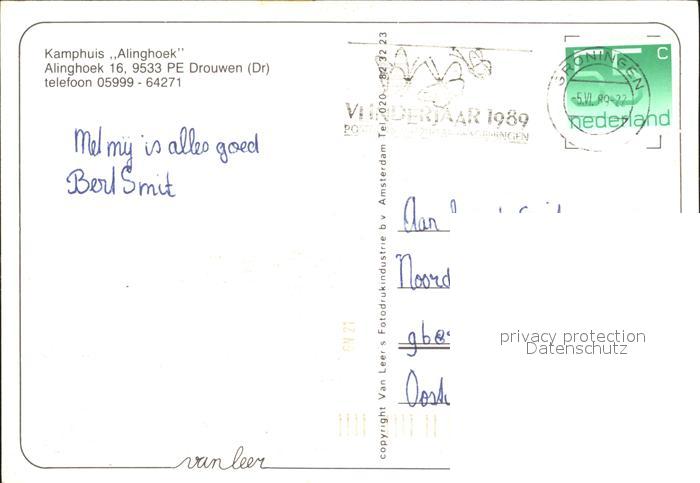 Kamphuis ,,Alinghoek"
Alinghoek 16, 9533 PE Drouwen (Dr)
telefoon 05999 - 64271
Met mij is alles goed
Bert Smit
van leer
copyright Van Leer's Fotodrukindustrie b v Amsterdam Tel 020 - 82 32 23
VLINDERJAAR 1989
GRONINGEN
-5.VI.89-22
55 C
nederland
Aan
Noord
privacy protection
Datenschutz